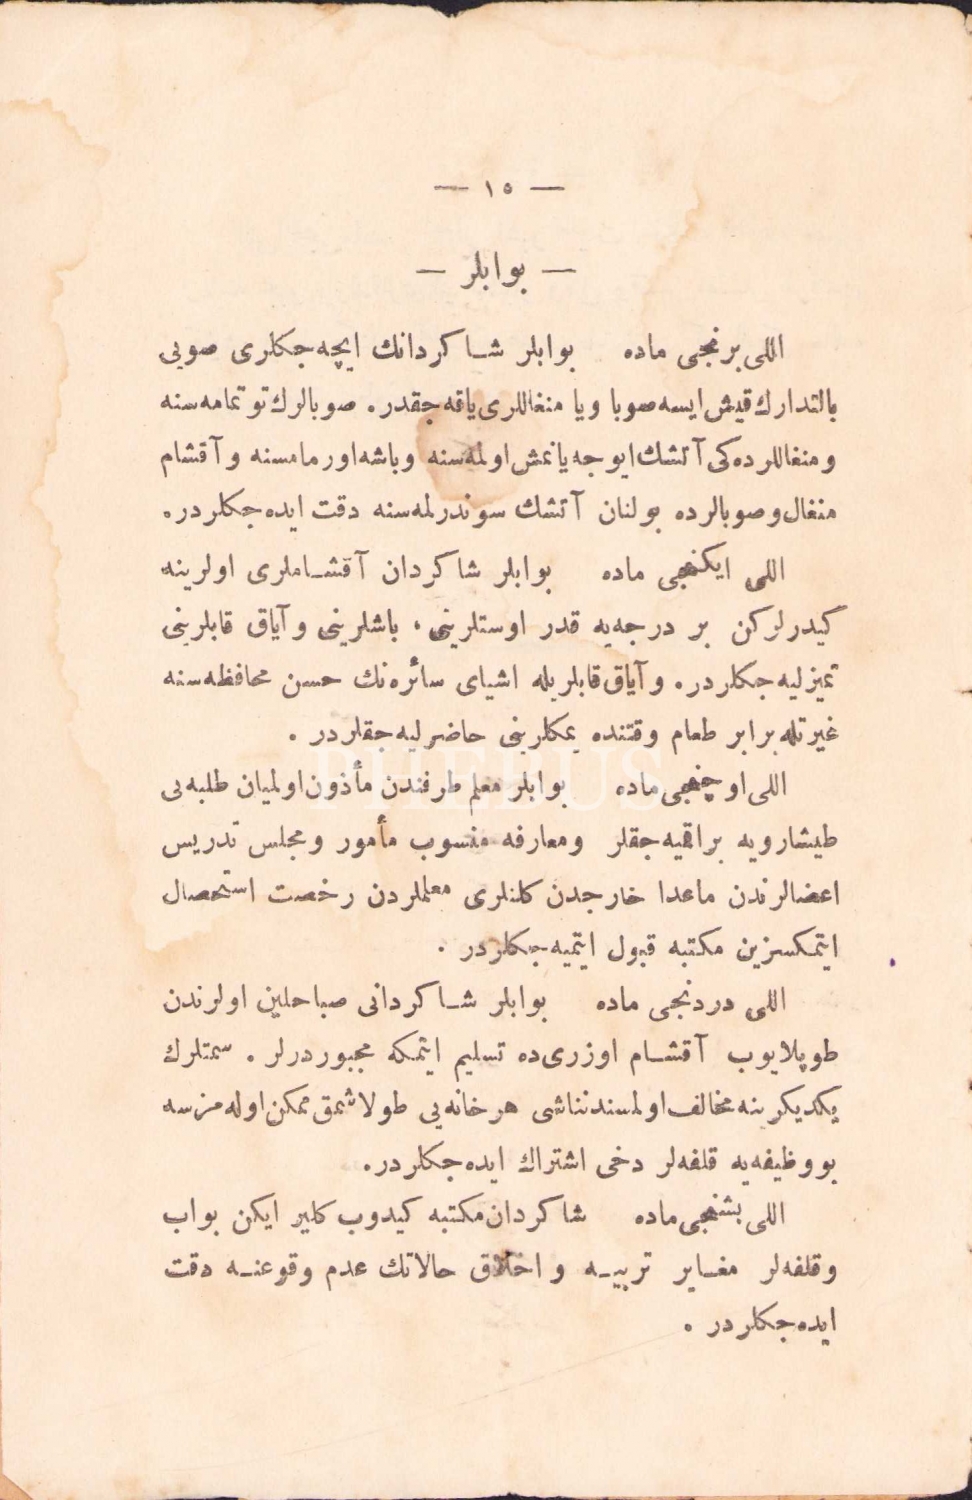 — ١٥ —
— بوابلر —
اللی برنجی ماده بوابلر شاكردانك ایچه‌جكلری صویی
بالتدارك قیش ایسه صوبا ویا منغاللری یاقه‌جقدر. صوبالرك توتمامه‌سنه
ومنغاللرده‌كی آتشك ایوجه یانمش اولمه‌سنه وباشه اورمامسنه وآقشام
منغال وصوبالرده بولنان آتشك سوندرلمه‌سنه دقت ایده‌جكلردر.
اللی ایكنجی ماده بوابلر شاكردان آقشاملری اولرینه
كیدرلركن بر درجه‌یه قدر اوستلرینی، باشلرینی وآیاق قابلرینی
تمیزلیه‌جكلردر. وآیاق قابلریله اشیای سائره‌نك حسن محافظه‌سنه
غیرتله برابر طعام وقتنده یمكلرینی حاضرلیه‌جقلردر.
اللی اوچنجی ماده بوابلر معلم طرفندن مأذون اولمیان طلبه‌یی
طیشارویه براقمیه‌جقلر ومعارفه منسوب مأمور ومجلس تدریس
اعضالرندن ماعدا خارجدن كلنلری معلملردن رخصت استحصال
ایتمكسزین مكتبه قبول ایتمیه‌جكلردر.
اللی دردنجی ماده بوابلر شاكردانی صباحلین اولرندن
طوپلایوب آقشام اوزری‌ده تسلیم ایتمكه مجبوردرلر. سمتلرك
یكدیكرینه مخالف اولمسندنناشی هر خانه‌یی طولاشمق ممكن اوله‌مزسه
بووظیفه‌یه قلفه‌لر دخی اشتراك ایده‌جكلردر.
اللی بشنجی ماده شاكردان مكتبه كیدوب كلیر ایكن بواب
وقلفه‌لر مغایر تربیه واخلاق حالاتك عدم وقوعنه دقت
ایده‌جكلردر.
PHEBUS